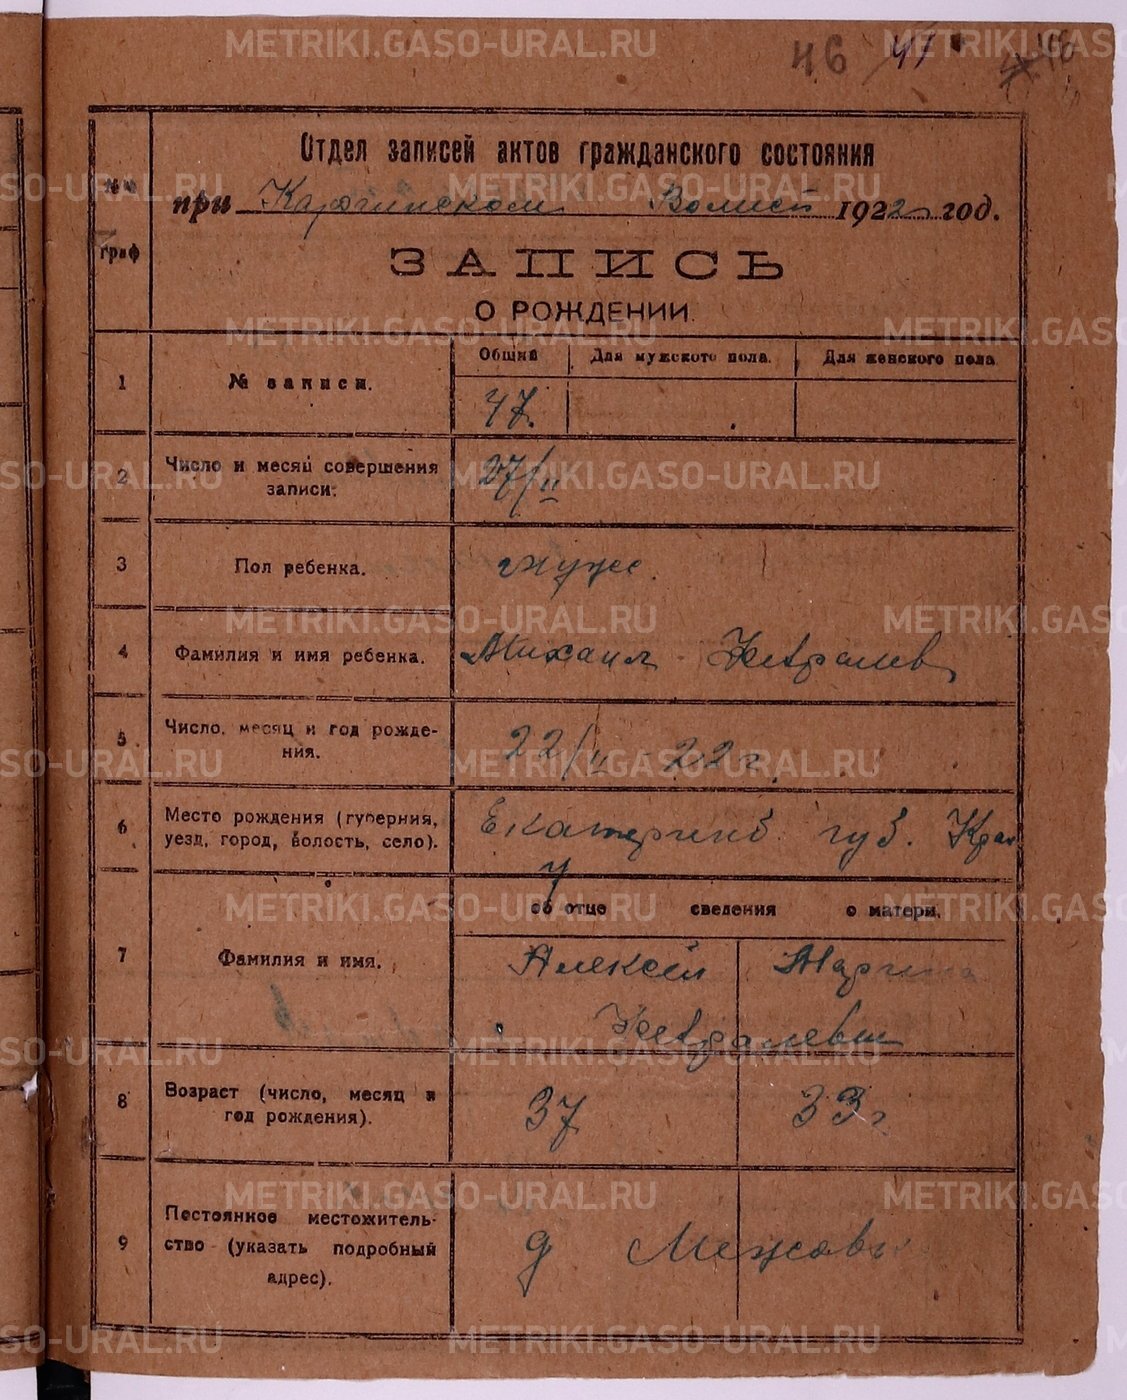 46 47 46
Отдел записей актов гражданского состояния
№№ граф
при Каргинском Волисп 1922 год.
ЗАПИСЬ
О РОЖДЕНИИ.
Общий Для мужского пола. Для женского пола
1 № записи. 47.
2 Число и месяц совершения записи: 27/II
3 Пол ребенка. муже.
4 Фамилия и имя ребенка. Михаил
5 Число, месяц и год рожде-
ния. 22/II 22 г.
6 Место рождения (губерния,
уезд, город, волость, село). Екатеринб. губ. Крас
у
об отце сведения о матери.
7 Фамилия и имя. Алексей
8 Возраст (число, месяц и
год рождения). 37 33 г
9 Постоянное местожитель-
ство (указать подробный
адрес). д Межовк
METRIKI.GASO-URAL.RU